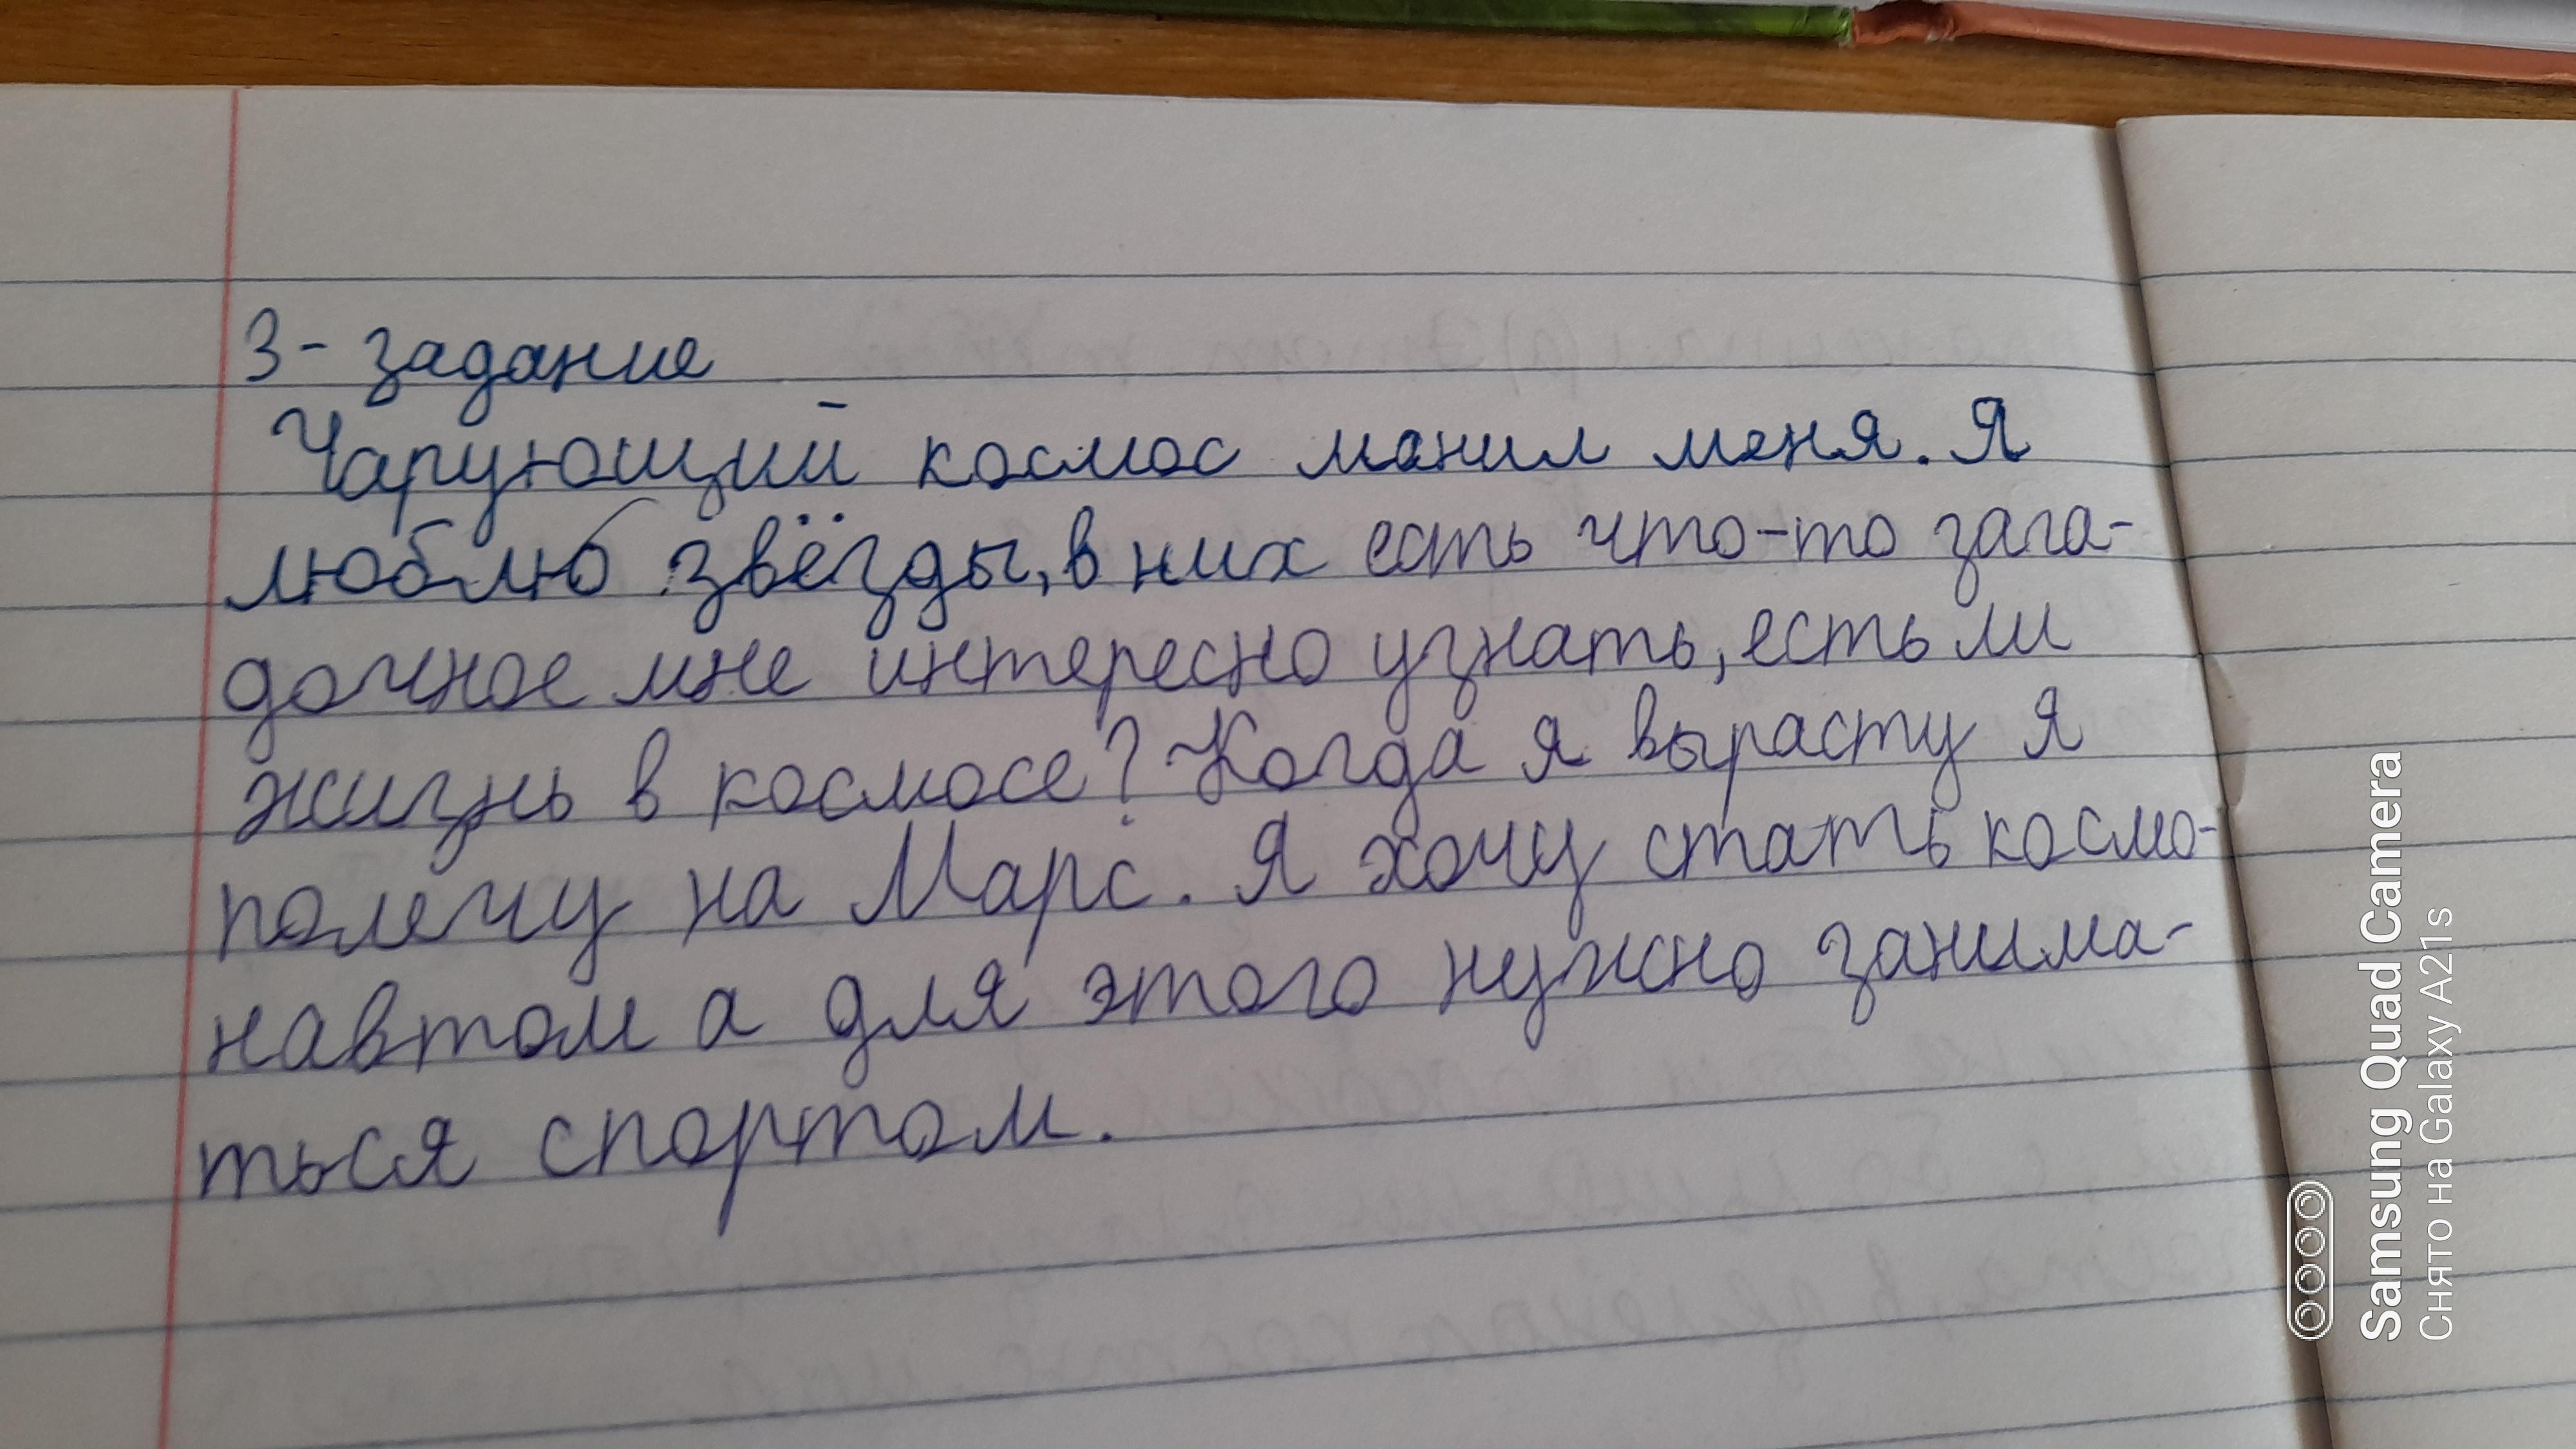 3- задание
Чарующий космос манил меня. Я
люблю звёзды, в них есть что-то зага-
дочное мне интересно узнать, есть ли
жизнь в космосе? Когда я вырасту я
полечу на Марс. Я хочу стать космо-
навтом а для этого нужно занима-
ться спортом.
Samsung Quad Camera
Снято на Galaxy A21s